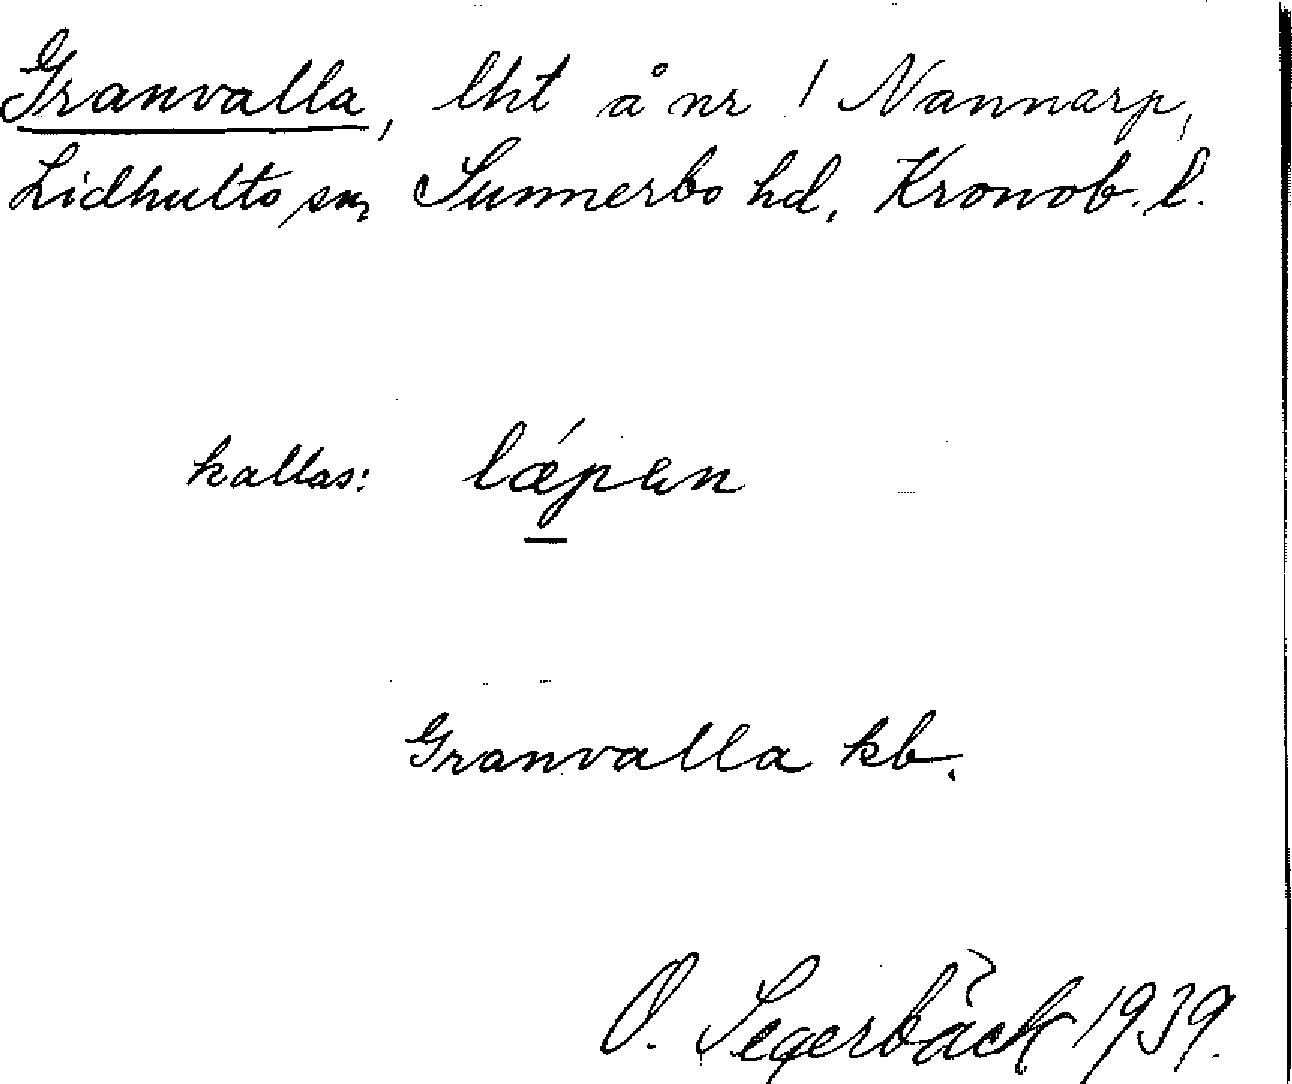 Granvalla, lht å nr 1 Nannarp,
Lidhults sn, Sunnerbo hd, Kronob. l.
kallas: lǽpen
Granvalla kb.
O. Segerbäck 1939.